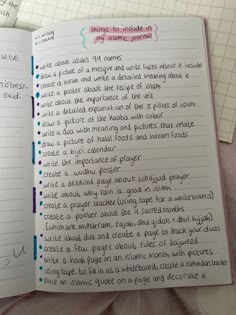 things to include in
my islamic journal
write about allahs 99 names
draw a picture of a mosque and write facts about it inside
choose a surah and write a detailed meaning about it
write a poster about the
write about the importance of the veil
write a detailed explanation of the 5 pillars of islam
draw a picture of the kaaba with colour
write a dua with meaning and pictures that relate
draw a picture of halal foods and haram foods
create a hijri calendar
write the importance of prayer
create a wudhu poster
write a detailed page about tahajjud prayer
write about why rain is good in islam
create a prayer tracker (using tape for a whiteboard)
create a poster about the 4 sacred months
(which are muharram, rajab, dhul qidah + dhul hijjah)
write about dua and create a page to track your duas
create a few pages about rules of tajweed
write a page on an islamic month with pictures
using tape to as a whiteboard, create a ramadan tracker
an islamic quote on a page and decorate it